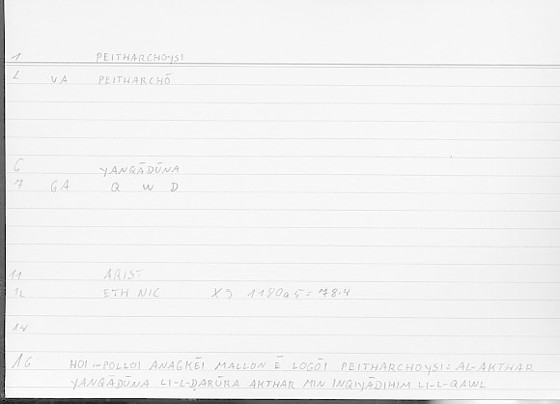 1 PEITHARCHOYSI
2 VA PEITHARCHŌ
6 YANQĀDŪNA
7 GA Q W D
11 ARIST
12 ETH NIC X9 1180a5 = 78.4
14
16 HOI -POLLOI ANAGKĒI MALLON Ē LOGŌI PEITHARCHOYSI = AL-AKTHAR
YANQĀDŪNA LI-L-DARŪRA AKTHAR MIN INQIYĀDIHIM LI-L-QAWL